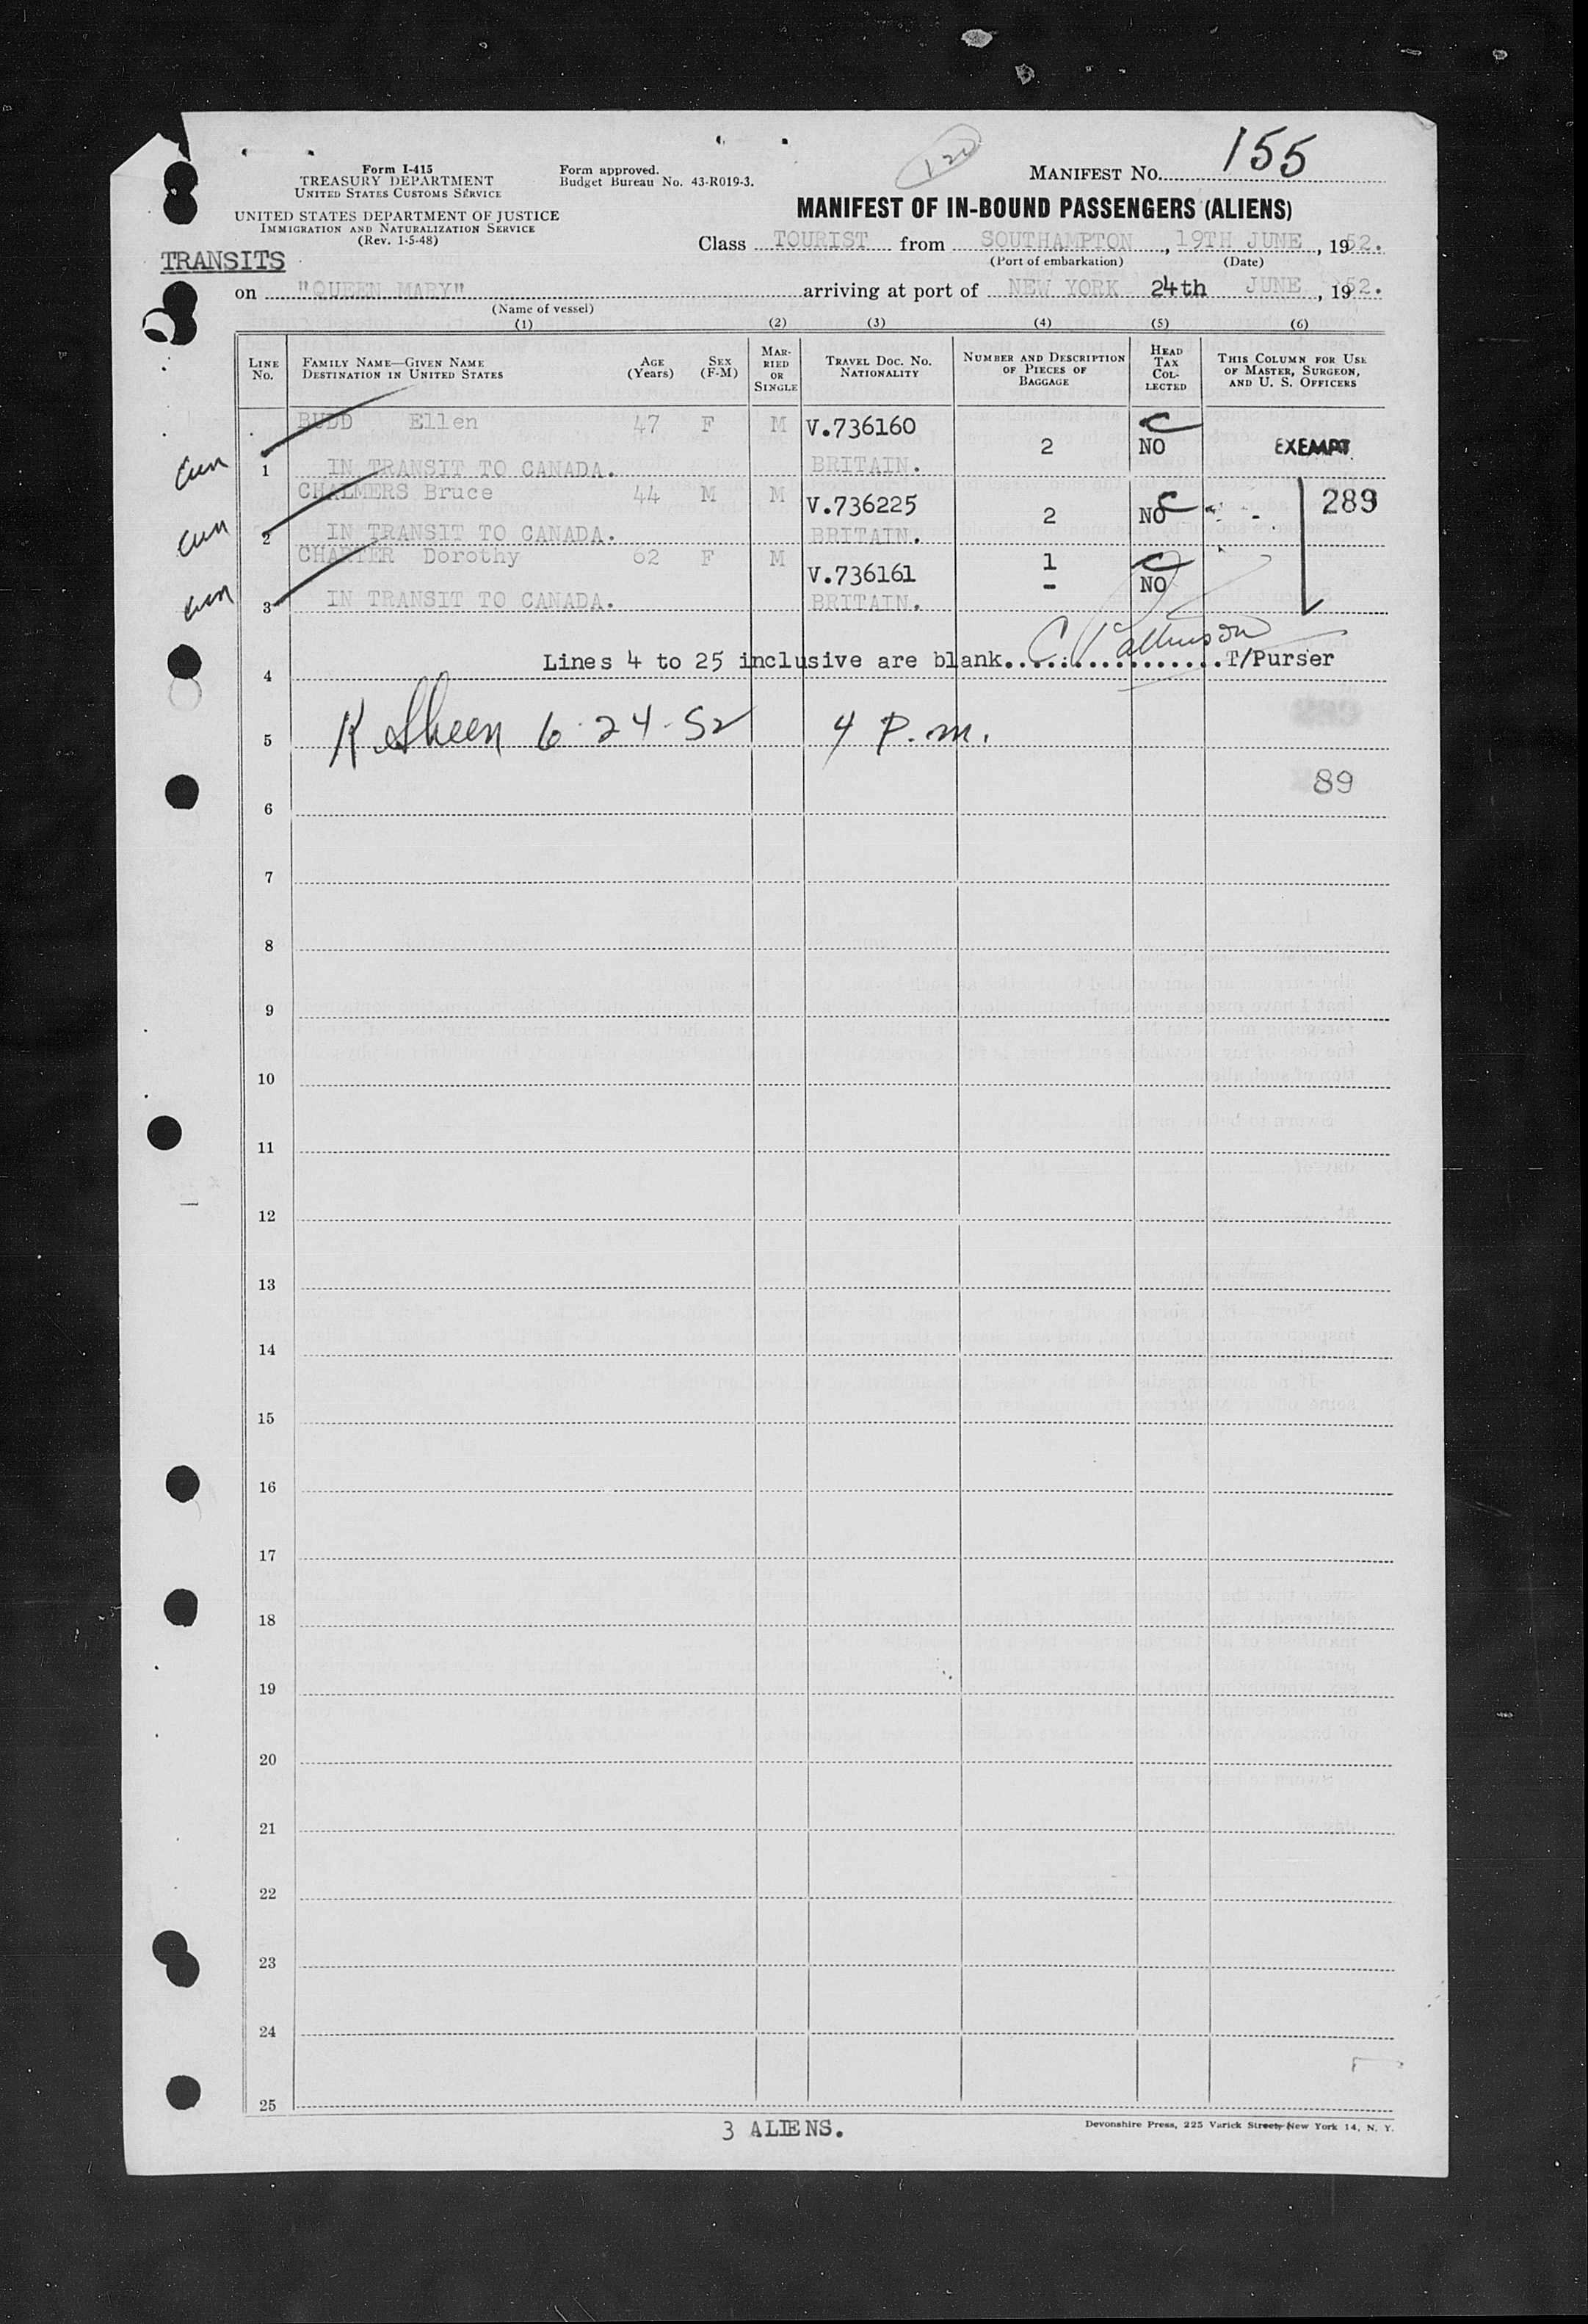 155
Form I-415
TREASURY DEPARTMENT
UNITED STATES CUSTOMS SERVICE
Form approved.
Budget Bureau No. 43-R019-3.
120
MANIFEST NO. 
UNITED STATES DEPARTMENT OF JUSTICE
IMMIGRATION AND NATURALIZATION SERVICE
(Rev. 1-5-48)
MANIFEST OF IN-BOUND PASSENGERS (ALIENS)
Class TOURIST from SOUTHAMPTON, 19TH JUNE, 1952.
(Port of embarkation) (Date)
TRANSITS
on "QUEEN MARY" arriving at port of NEW YORK 24th JUNE, 1952.
(Name of vessel)
(1) (2) (3) (4) (5) (6)
LINE NO. FAMILY NAME—GIVEN NAME DESTINATION IN UNITED STATES AGE (Years) SEX (F-M) MARRIED OR SINGLE TRAVEL DOC. NO. NATIONALITY NUMBER AND DESCRIPTION OF PIECES OF BAGGAGE HEAD TAX COLLECTED THIS COLUMN FOR USE OF MASTER, SURGEON, AND U. S. OFFICERS
BUDD Ellen 47 F M V.736160 C
2 NO EXEMPT
1 IN TRANSIT TO CANADA. BRITAIN.
CHALMERS Bruce 44 M M V.736225 2 NO C 289
2 IN TRANSIT TO CANADA. BRITAIN.
CHARTER Dorothy 62 F M V.736161 1 - C NO
3 IN TRANSIT TO CANADA. BRITAIN.
4 Lines 4 to 25 inclusive are blank..................T/Purser
5 K Sheen 6-24-52 4 P.m.
89
6
7
8
9
10
11
12
13
14
15
16
17
18
19
20
21
22
23
24
25
3 ALIENS.
Devonshire Press, 225 Varick Street, New York 14, N. Y.